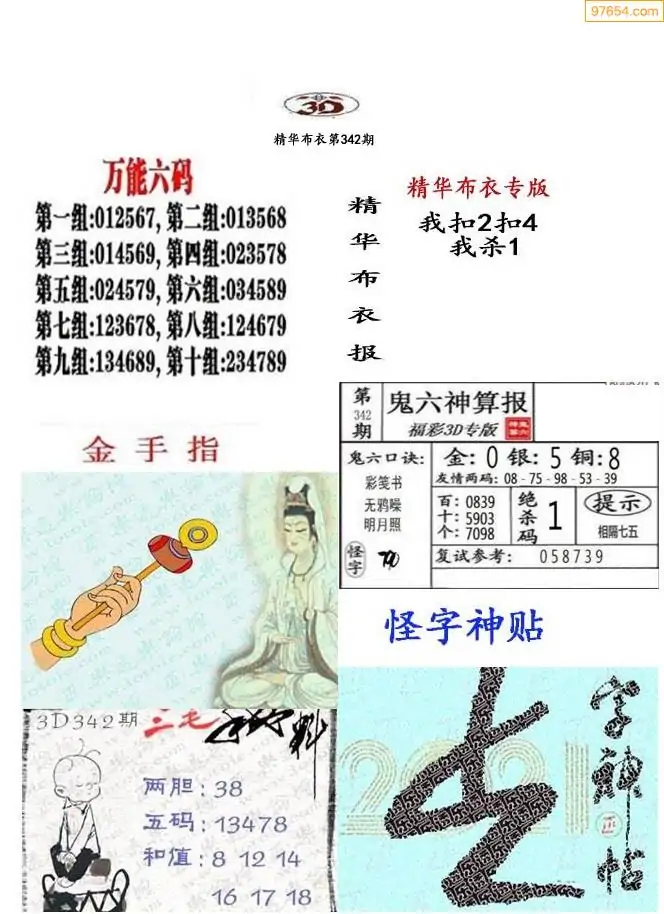 97654.com
3D
精华布衣第342期
万能六码
第一组:012567, 第二组:013568
第三组:014569, 第四组:023578
第五组:024579, 第六组:034589
第七组:123678, 第八组:124679
第九组:134689, 第十组:234789
精华布衣报
精华布衣专版
我扣2扣4
我杀1
金手指
第342期
鬼六神算报
福彩3D专版
鬼六口诀:
彩笺书
无鸦噪
明月照
怪字
金:0 银:5 铜:8
友情两码: 08 - 75 - 98 - 53 - 39
百: 0839
十: 5903
个: 7098
绝杀码
1
提示
相隔七五
复试参考: 058739
怪字神贴
3D342期
三毛
两胆: 38
五码: 13478
和值: 8 12 14
16 17 18
2021
字神帖